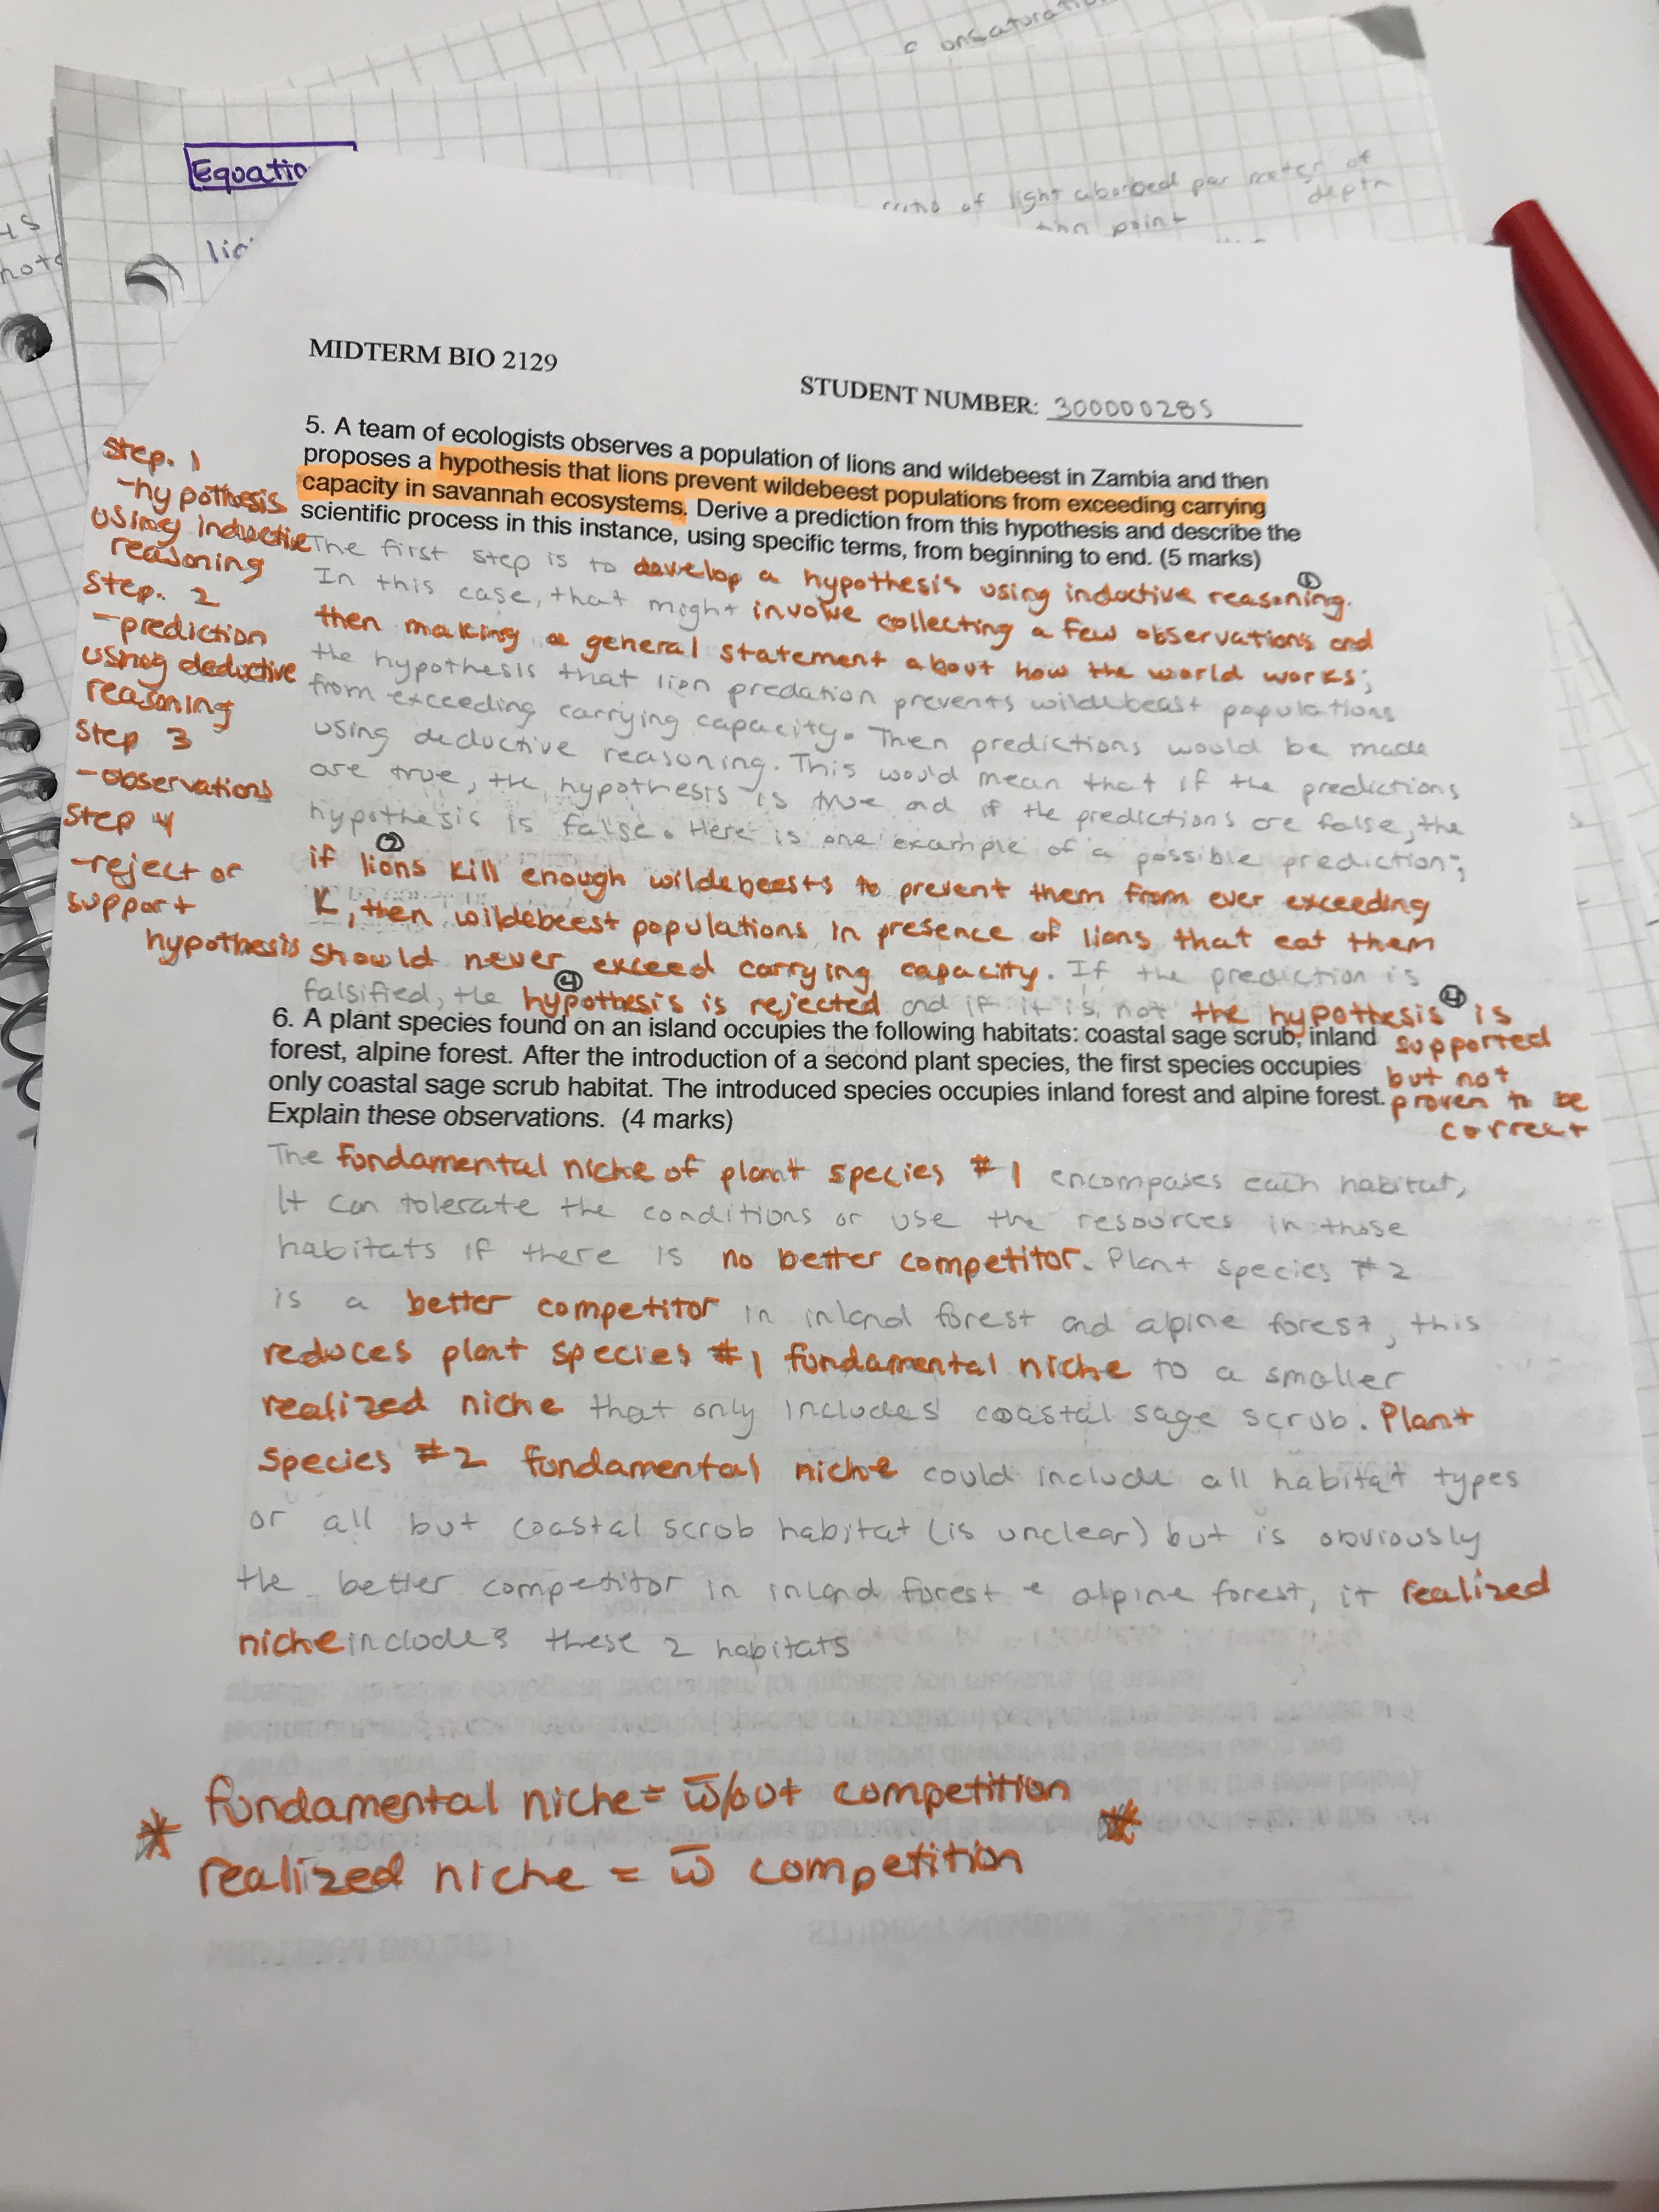 onsaturatio
Equatio
of light aborbed per meter of
depth
point
MIDTERM BIO 2129
STUDENT NUMBER: 300000285
5. A team of ecologists observes a population of lions and wildebeest in Zambia and then
proposes a hypothesis that lions prevent wildebeest populations from exceeding carrying
capacity in savannah ecosystems. Derive a prediction from this hypothesis and describe the
scientific process in this instance, using specific terms, from beginning to end. (5 marks)
Step. 1
-hypothesis
using inductive
reasoning
Step. 2
-prediction
using deductive
reasoning
Step 3
-observations
Step 4
-reject or
support
hypothesis
The first step is to develop a hypothesis using inductive reasoning. ①
In this case, that might involve collecting a few observations and
then making a general statement about how the world works;
the hypothesis that lion predation prevents wildebeast populations
from exceeding carrying capacity. Then predictions would be made
using deductive reasoning. This would mean that if the predictions
are true, the hypothesis is true and if the predictions are false, the
hypothesis is false. Here is one example of a possible prediction;
② if lions kill enough wildebeests to prevent them from ever exceeding
K, then wildebeest populations in presence of lions that eat them
should never exceed carrying capacity. If the prediction is
falsified, the hypothesis ④ is rejected and if it is not the hypothesis ④ is
supported
but not
proven to be
correct
6. A plant species found on an island occupies the following habitats: coastal sage scrub, inland
forest, alpine forest. After the introduction of a second plant species, the first species occupies
only coastal sage scrub habitat. The introduced species occupies inland forest and alpine forest.
Explain these observations. (4 marks)
The fundamental niche of plant species #1 encompases each habitat,
It can tolerate the conditions or use the resources in those
habitats if there is no better competitor. Plant species #2
is a better competitor in inland forest and alpine forest, this
reduces plant species #1 fundamental niche to a smaller
realized niche that only includes coastal sage scrub. Plant
species #2 fundamental niche could include all habitat types
or all but coastal scrub habitat (is unclear) but is obviously
the better competitor in inland forest e alpine forest, it realized
niche includes these 2 habitats
* fundamental niche = w̅/out competition *
realized niche = w̅ competition